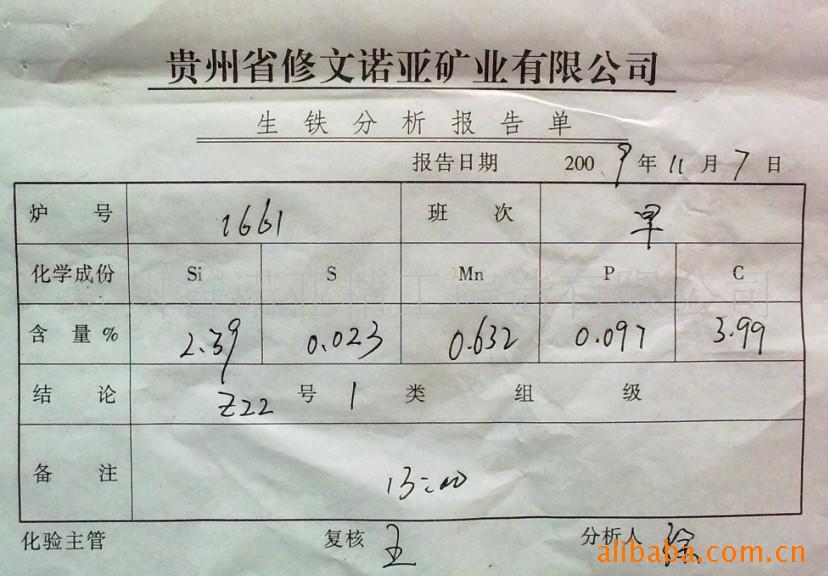 贵州省修文诺亚矿业有限公司
生铁分析报告单
报告日期 2009年11月7日
炉号 1661 班次 早
化学成份 Si S Mn P C
含量% 2.39 0.023 0.632 0.097 3.99
结论 Z22 号 1 类 组 级
备注 13:00
化验主管 复核 王 分析人 徐
alibaba.com.cn